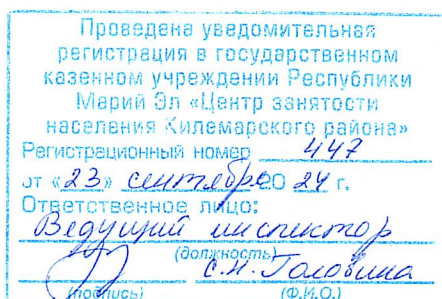 Проведена уведомительная
регистрация в государственном
казенном учреждении Республики
Марий Эл «Центр занятости
населения Килемарского района»
Регистрационный номер 447
от «23» сентября 20 24 г.
Ответственное лицо:
Ведущий инспектор
(должность)
С.Н. Головина
(подпись) (Ф.И.О.)